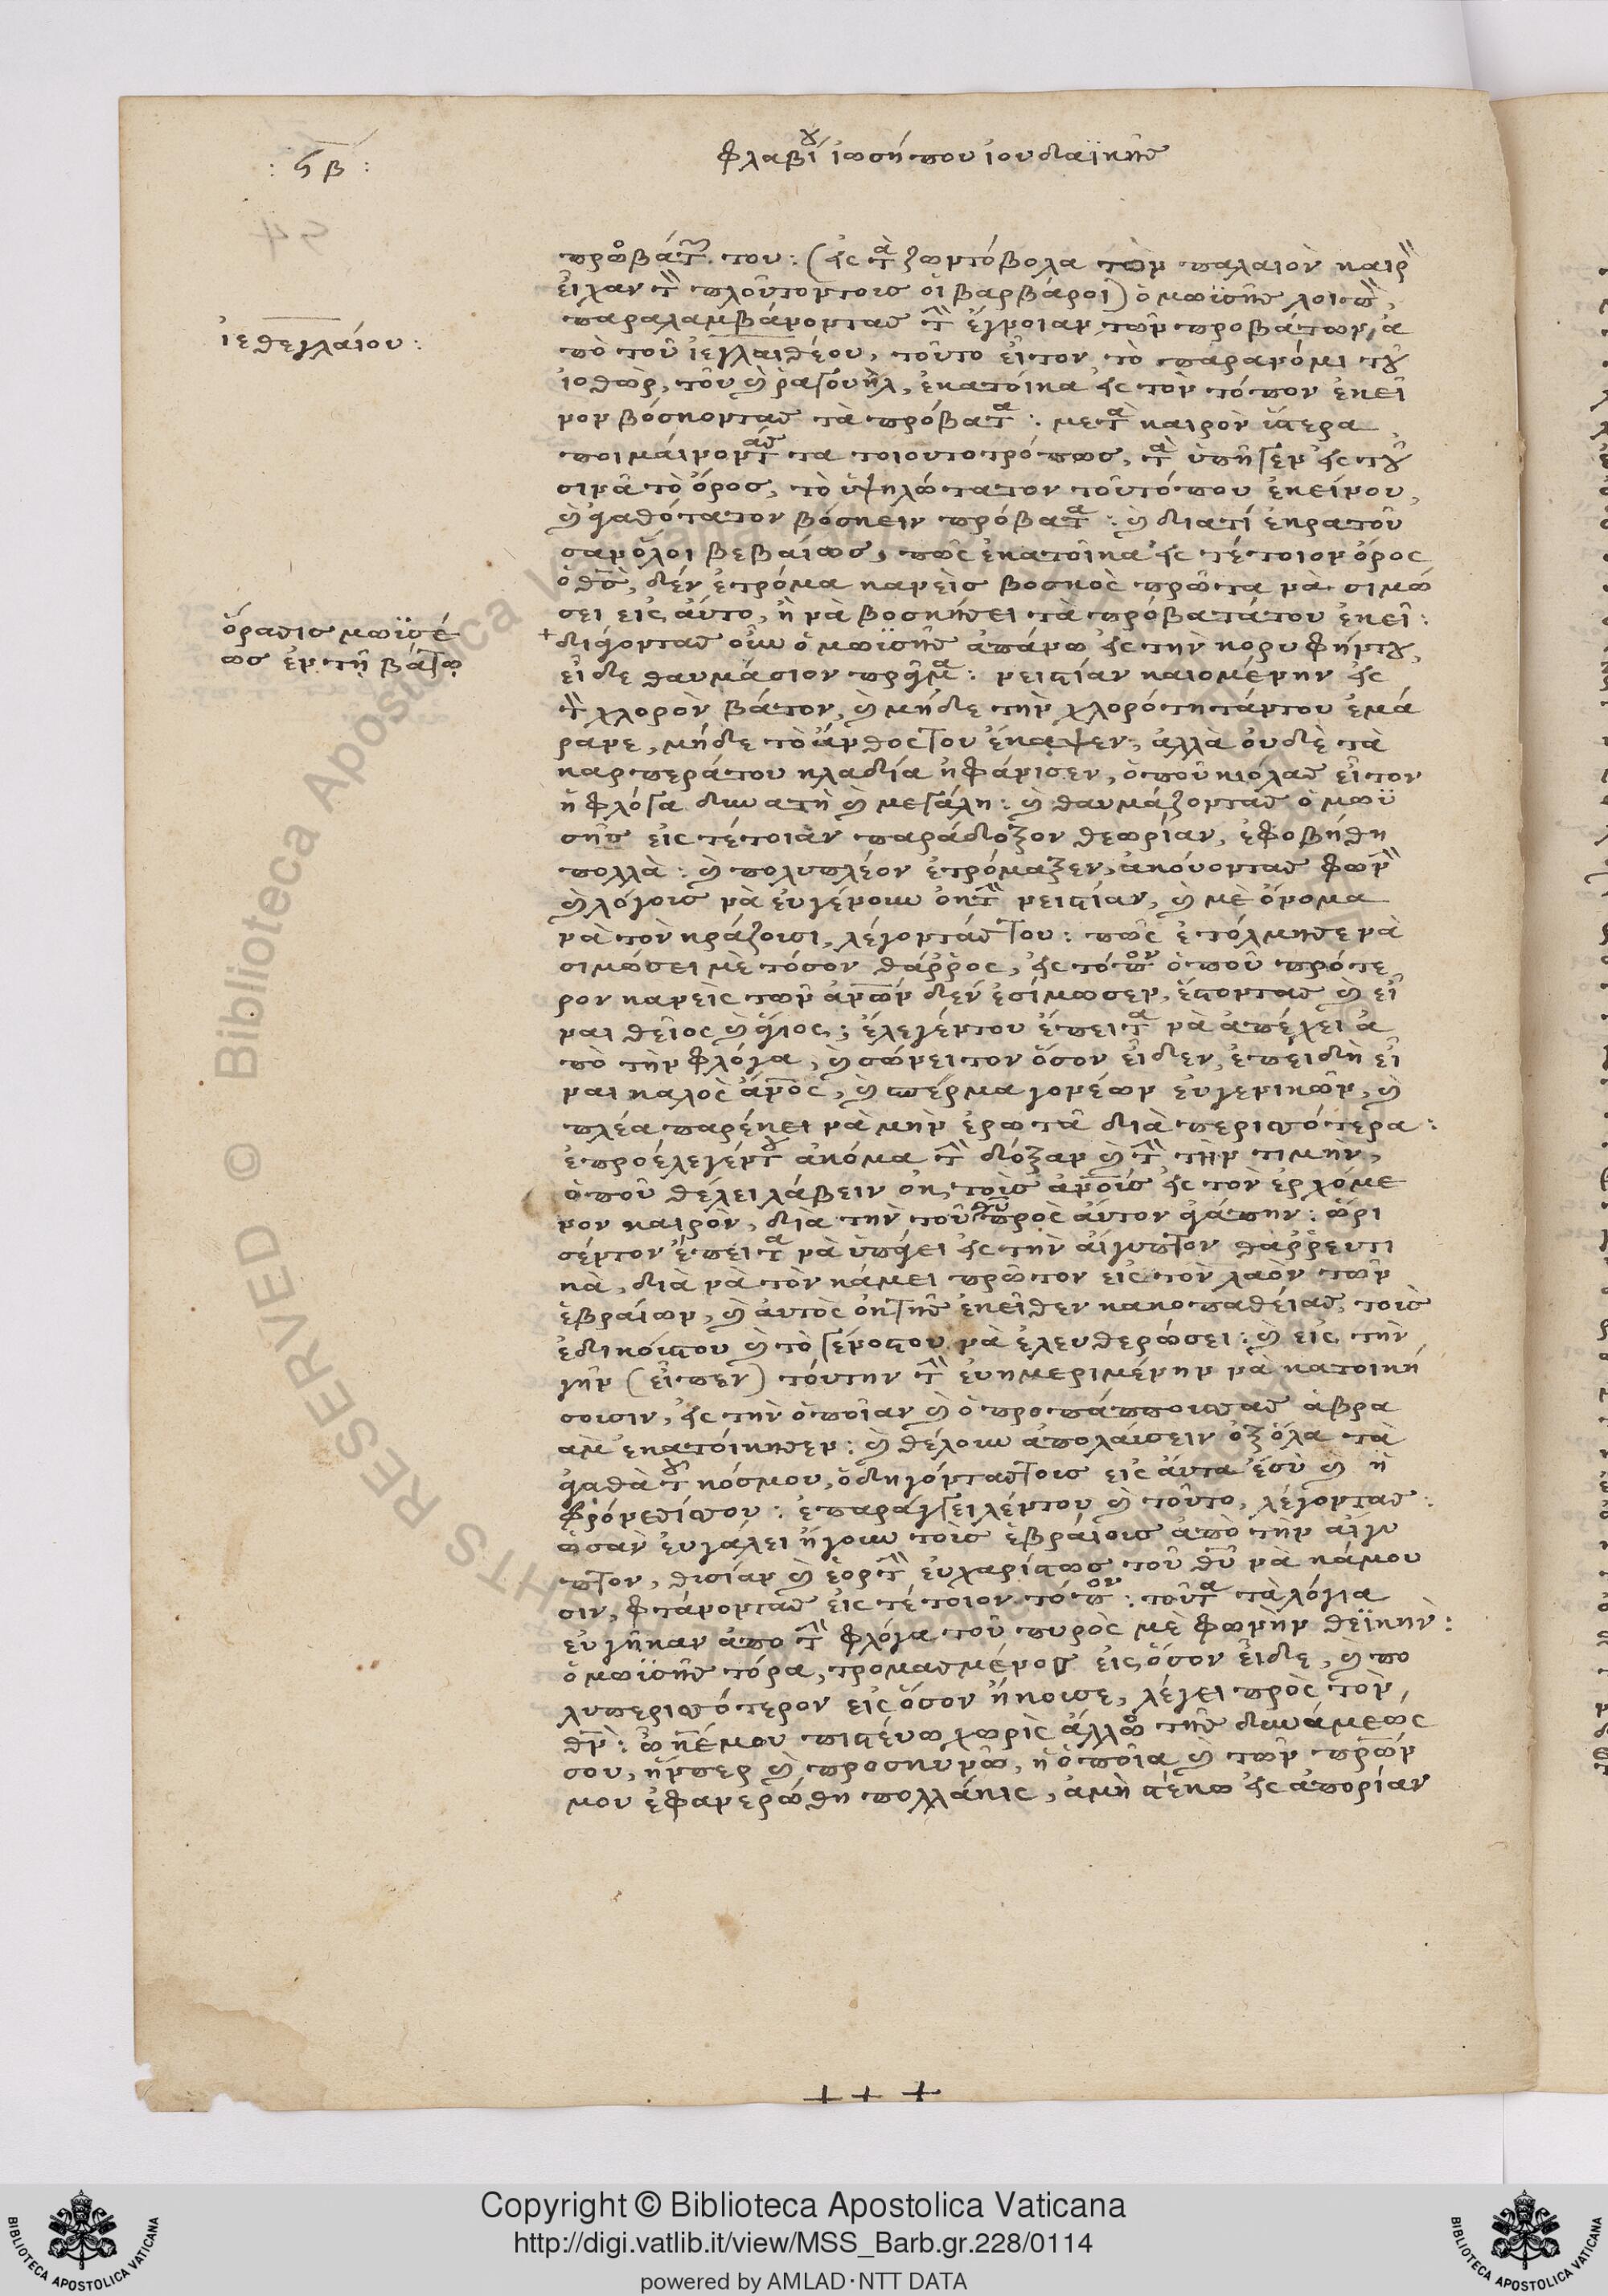 : ϟβ :
φλαβίου ἰωσήπου ἰουδαϊκῆς
προβάτων του : (εἰς τὰ ζωντόβολα τὸν παλαιὸν καιρὸν
εἶχαν τὸν πλοῦτον τοις οἱ βαρβάροι) ὁ μωϋσῆς λοιπὸν,
παραλαμβάνοντας τὴν ἔγνοιαν τῶν προβάτων ἀ
πὸ τοῦ ἰεγλαιθέου, τοῦτο εἶτον τὸ παρανόμι τοῦ
ἰοθὼρ, τοῦ καὶ ῥαγουὴλ, ἐκατοίκα εἰς τὸν τόπον ἐκεῖ
νον βόσκοντας τὰ πρόβατα : μετὰ καιρὸν ὕστερα
ποιμαίνοντάς τα τοιουτοτρόπως, τὰ ὑπῆγεν εἰς τοῦ
σινᾶ τὸ ὄρος, τὸ ὑψηλώτατον τοῦ τόπου ἐκείνου,
καὶ ἀγαθότατον βόσκειν πρόβατα : καὶ διατί ἐκρατοῦ
σαν ὅλοι βεβαίως, πῶς ἐκατοῖκα εἰς τέτοιον ὄρος
ὁ θεὸς, δὲν ἐτρόμα κανεὶς βοσκὸς πρῶτα νὰ σιμώ
σει εἰς αὐτο, ἢ νὰ βοσκήσει τὰ πρόβατά του ἐκεῖ :
+ διάγοντας οὖν ὁ μωϋσῆς ἀπάνω εἰς τὴν κορυφήν του,
εἶδε θαυμάσιον πρᾶγμα : νειστίαν καιομένην εἰς
τὸν χλορὸν βάτον, καὶ μήδε τὴν χλορότητάν του ἐμά
ρανε, μήδε τὸ ἄνθος του ἔκαψεν, ἀλλὰ οὐδὲ τὰ
καρπεράτου κλαδία ἠφάνισεν, ὁποῦ κιόλας εἶτον
ἡ φλόγα δυνατὴ καὶ μεγάλη : καὶ θαυμάζοντας ὁ μωϋ
σῆς εἰς τέτοιαν παράδοξον θεωρίαν, ἐφοβήθη
πολλὰ : καὶ πολυπλέον ἐτρόμαξεν, ἀκούοντας φωνὴν
καὶ λόγοις νὰ εὐγένουν ἐκ τὴν νειστίαν, καὶ μὲ ὄνομα
νὰ τὸν κράζουσι, λέγοντάς του : πῶς ἐτόλμησε νὰ
σιμώσει μὲ τόσον θάῤῥος, εἰς τόπον ὁποῦ πρότε
ρον κανεὶς τῶν ἀνων δεν ἐσίμωσεν, ἔστοντας καὶ εἶ
ναι θεῖος καὶ ἅγιος ; ἔλεγέν του ἔπειτα νὰ ἀπέχει ἀ
πὸ τὴν φλόγα, καὶ σώνει τον ὅσον εἶδεν, ἐπειδὴ εἶ
ναι καλὸς ἄνος, καὶ σπέρμα γονέων εὐγενικῶν, καὶ
πλέα παρέκει νὰ μὴν ἐρωτᾶ διὰ περισσότερα :
ἐπροέλεγέν του ἀκόμα τὴν δόξαν καὶ τὴν τιμὴν,
ὁποῦ θέλει λάβειν ἐκ τοὶς ἀνοίς εἰς τὸν ἐρχόμε
νον καιρὸν, διὰ τὴν τοῦ θυ πρὸς αὐτον ἀγάπην : ὥρι
σέν τον ἔπειτα νὰ ὑπάγει εἰς τὴν αἴγυπτον θαῤῥευτι
κὰ, διὰ νὰ τὸν κάμει πρῶτον εἰς τὸν λαὸν τῶν
ἑβραίων, καὶ αὐτὸς ἐκ τῆς ἐκεῖθεν κακοπαθείας, τοις
ἐδικούς του καὶ τὸ γένος του νὰ ἐλευθερώσει : καὶ εἰς τὴν
γῆν (εἶπεν) τούτην τὴν εὐημεριμένην νὰ κατοική
σουσιν, εἰς τὴν ὁποῖαν καὶ ὁ προπάππους σας ἁβρα
ὰμ ἐκατοίκησεν : καὶ θέλουν ἀπολαύσειν ἐξ ὅλα τὰ
ἀγαθὰ τοῦ κόσμου, ὁδηγόντας τοις εἰς αὐτα ἐσὺ καὶ ἡ
φρόνεσίς σου : ἐπαράγγειλέν του καὶ τοῦτο, λέγοντας :
ὡσὰν εὐγάλει ἤγουν τοὶς ἑβραίοις ἀπὸ τὴν αἴγυ
πτον, θυσίαν καὶ ἑορτὴν εὐχαρίστως τοῦ θυ νὰ κάμου
σιν, φτάνοντας εἰς τέτοιον τόπον : τοῦτα τὰ λόγια
εὐγῆκαν ἀπο τὴν φλόγα τοῦ πυρὸς μὲ φωνὴν θεϊκὴν :
ὁ μωϋσῆς τόρα, τρομασμένος εἰς ὅσον εἶδε, καὶ πο
λυπερισσότερον εἰς ὅσον ἤκουσε, λέγει πρὸς τὸν
θν : ὦ κε μου πιστεύω χωρὶς ἄλλου τῆς δυνάμεως
σου, ἥνπερ καὶ προσκυνῶ, ἡ ὁποῖα καὶ τῶν πρων
μου ἐφανερώθη πολλάκις, ἀμὴ στέκω εἰς ἀπορίαν
ἰεθεγλαίου :
ὅρασις μωϋσέ
ως ἐν τῇ βάτῳ
+ + +
© Biblioteca Apostolica Vaticana
RIGHTS RESERVED
Copyright © Biblioteca Apostolica Vaticana
http://digi.vatlib.it/view/MSS_Barb.gr.228/0114
powered by AMLAD·NTT DATA
BIBLIOTECA APOSTOLICA VATICANA
BIBLIOTECA APOSTOLICA VATICANA